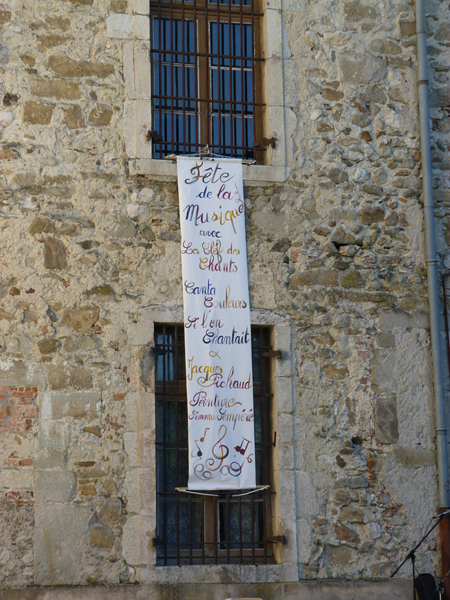 Fête
de la
Musique
avec
La Clef des
Chants
Canta
Couleurs
Si l'on
Chantait
&
Jacques
Pichaud
Peinture
Tempéré